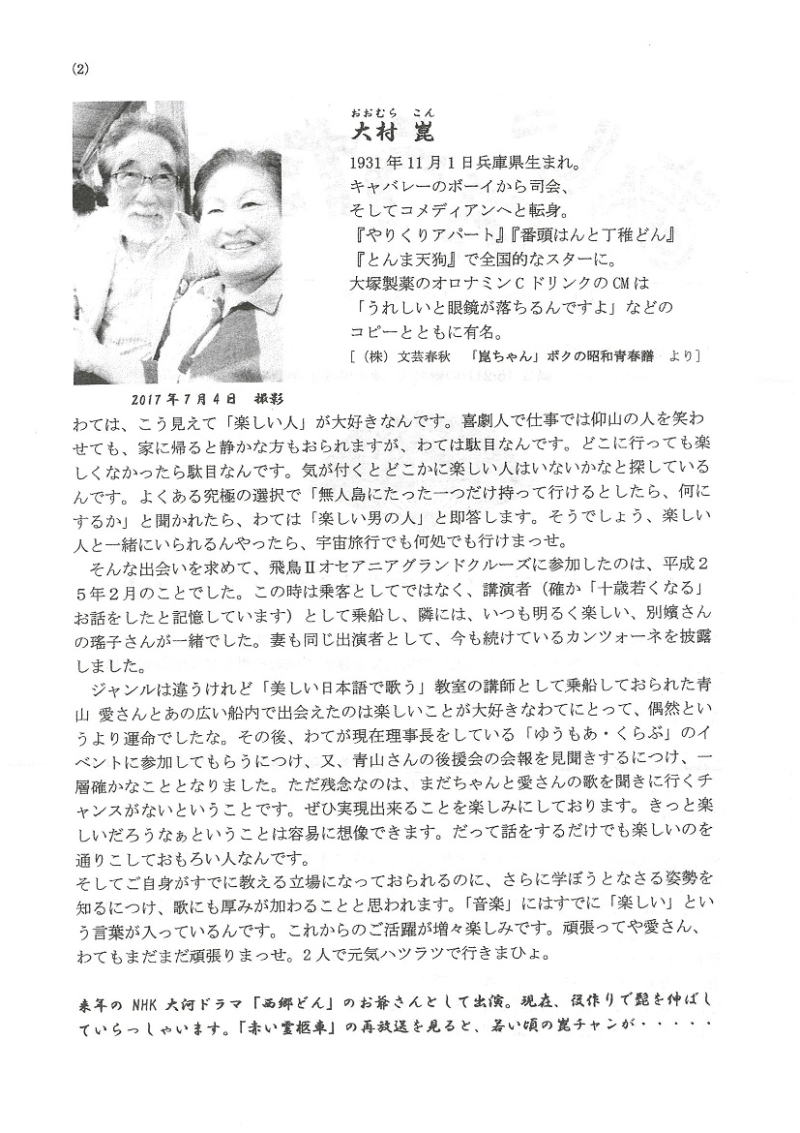 (2)
おおむら こん
大村 崑
1931年11月1日兵庫県生まれ。
キャバレーのボーイから司会、
そしてコメディアンへと転身。
『やりくりアパート』『番頭はんと丁稚どん』
『とんま天狗』で全国的なスターに。
大塚製薬のオロナミンCドリンクのCMは
「うれしいと眼鏡が落ちるんですよ」などの
コピーとともに有名。
[（株）文芸春秋 「崑ちゃん」ボクの昭和青春譜 より]
2017年7月4日 撮影
わては、こう見えて「楽しい人」が大好きなんです。喜劇人で仕事では仰山の人を笑わ
せても、家に帰ると静かな方もおられますが、わては駄目なんです。どこに行っても楽
しくなかったら駄目なんです。気が付くとどこかに楽しい人はいないかなと探している
んです。よくある究極の選択で「無人島にたった一つだけ持って行けるとしたら、何に
するか」と聞かれたら、わては「楽しい男の人」と即答します。そうでしょう、楽しい
人と一緒にいられるんやったら、宇宙旅行でも何処でも行けまっせ。
そんな出会いを求めて、飛鳥Ⅱオセアニアグランドクルーズに参加したのは、平成２
５年２月のことでした。この時は乗客としてではなく、講演者（確か「十歳若くなる」
お話をしたと記憶しています）として乗船し、隣には、いつも明るく楽しい、別嬪さん
の瑤子さんが一緒でした。妻も同じ出演者として、今も続けているカンツォーネを披露
しました。
ジャンルは違うけれど「美しい日本語で歌う」教室の講師として乗船しておられた青
山 愛さんとあの広い船内で出会えたのは楽しいことが大好きなわてにとって、偶然とい
うより運命でしたな。その後、わてが現在理事長をしている「ゆうもあ・くらぶ」のイ
ベントに参加してもらうにつけ、又、青山さんの後援会の会報を見聞きするにつけ、一
層確かなこととなりました。ただ残念なのは、まだちゃんと愛さんの歌を聞きに行くチ
ャンスがないということです。ぜひ実現出来ることを楽しみにしております。きっと楽
しいだろうなぁということは容易に想像できます。だって話をするだけでも楽しいのを
通りこしておもろい人なんです。
そしてご自身がすでに教える立場になっておられるのに、さらに学ぼうとなさる姿勢を
知るにつけ、歌にも厚みが加わることと思われます。「音楽」にはすでに「楽しい」とい
う言葉が入っているんです。これからのご活躍が増々楽しみです。頑張ってや愛さん、
わてもまだまだ頑張りまっせ。2人で元気ハツラツで行きまひょ。
来年の NHK 大河ドラマ「西郷どん」のお爺さんとして出演。現在、役作りで髭を伸ばし
ていらっしゃいます。「赤い霊柩車」の再放送を見ると、若い頃の崑チャンが・・・・・